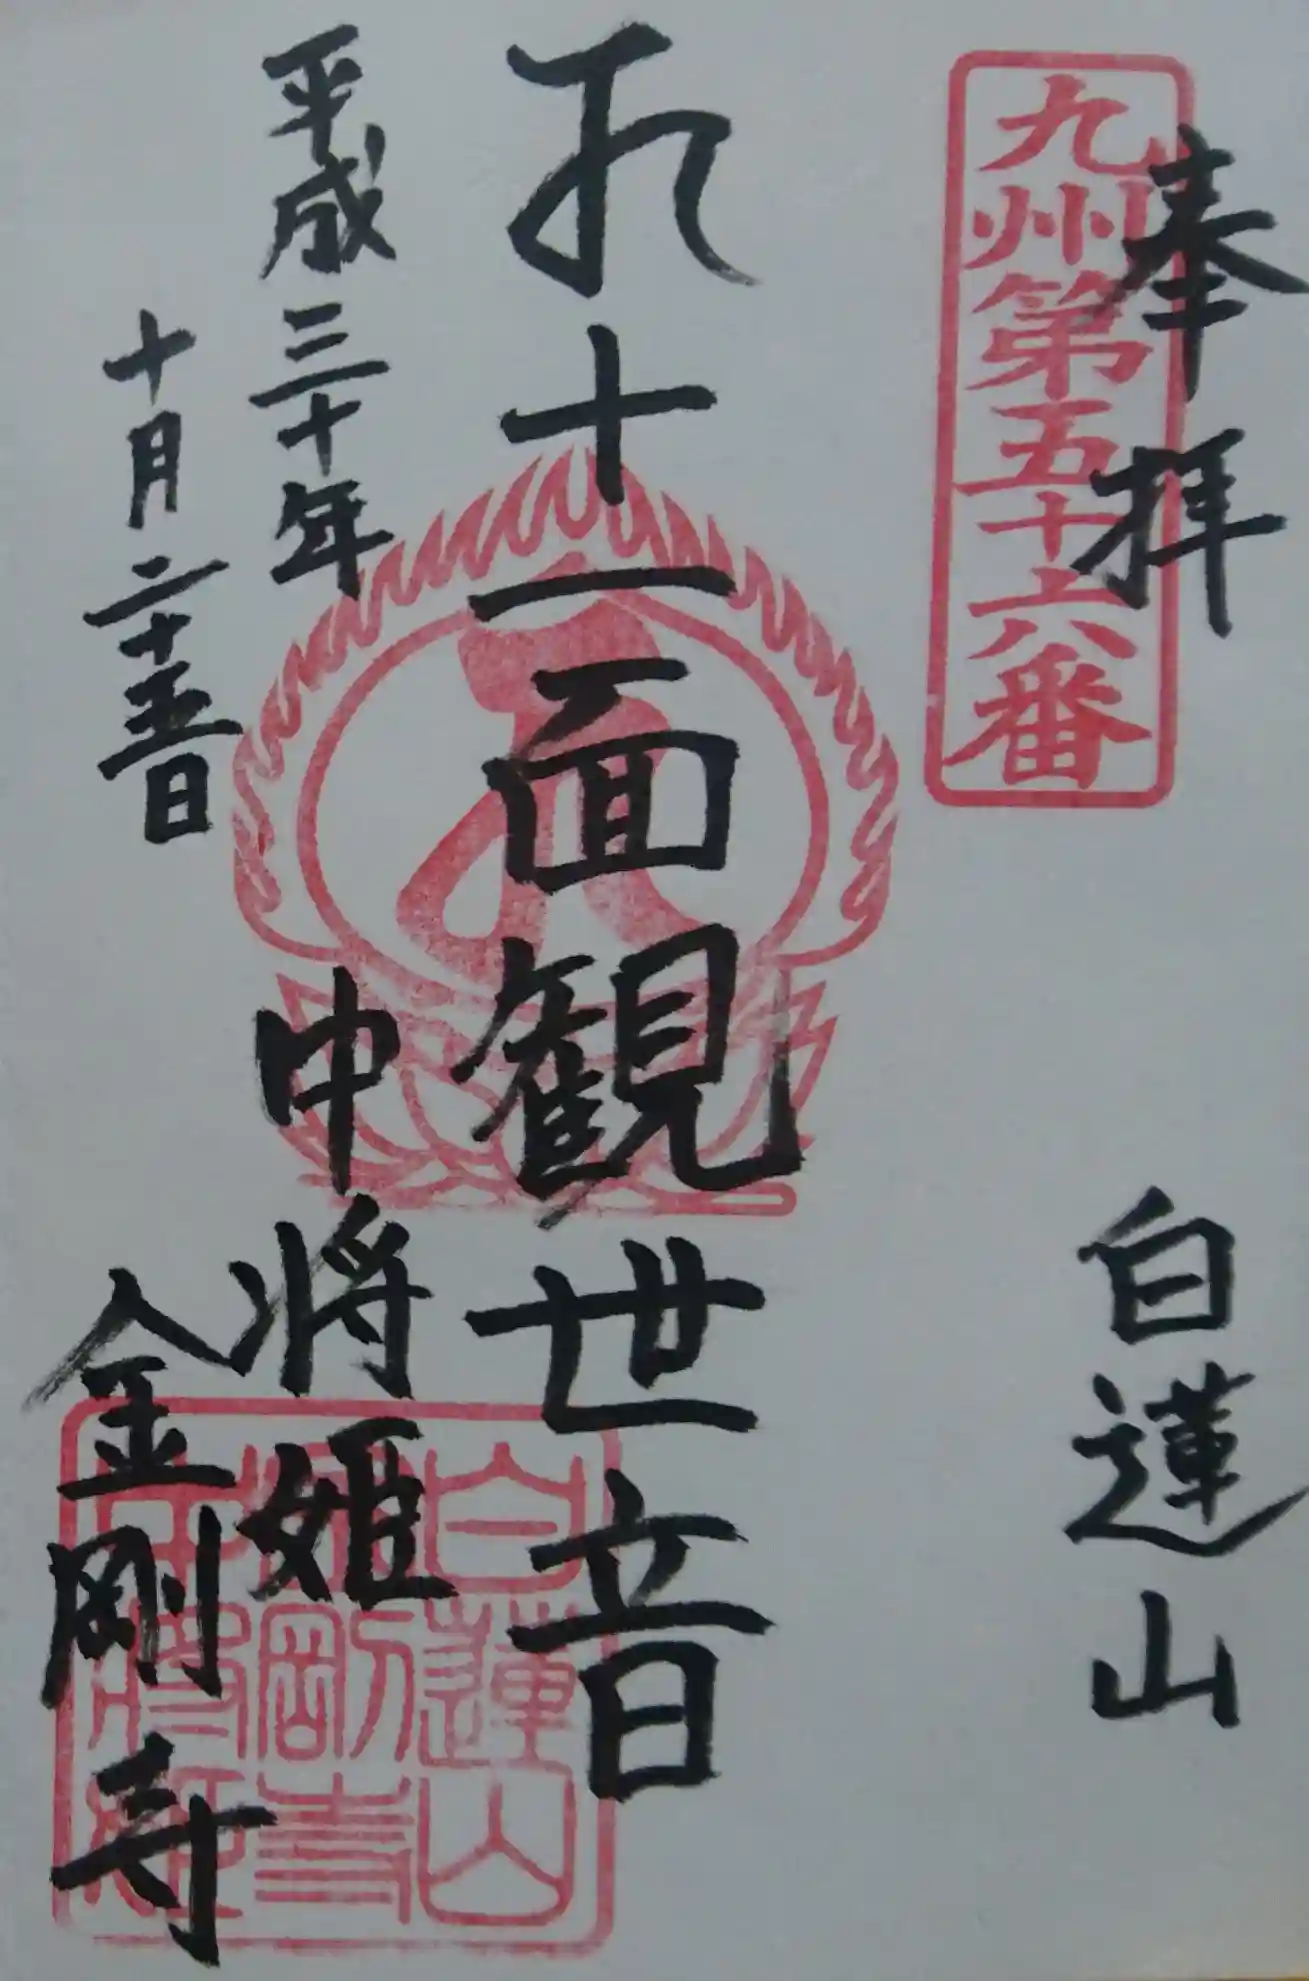 奉拝
白蓮山
九州第五十六番
十一面観世音
平成三十年
十月二十五日
中将姫
金剛寺
白蓮山
金剛寺
中将姫